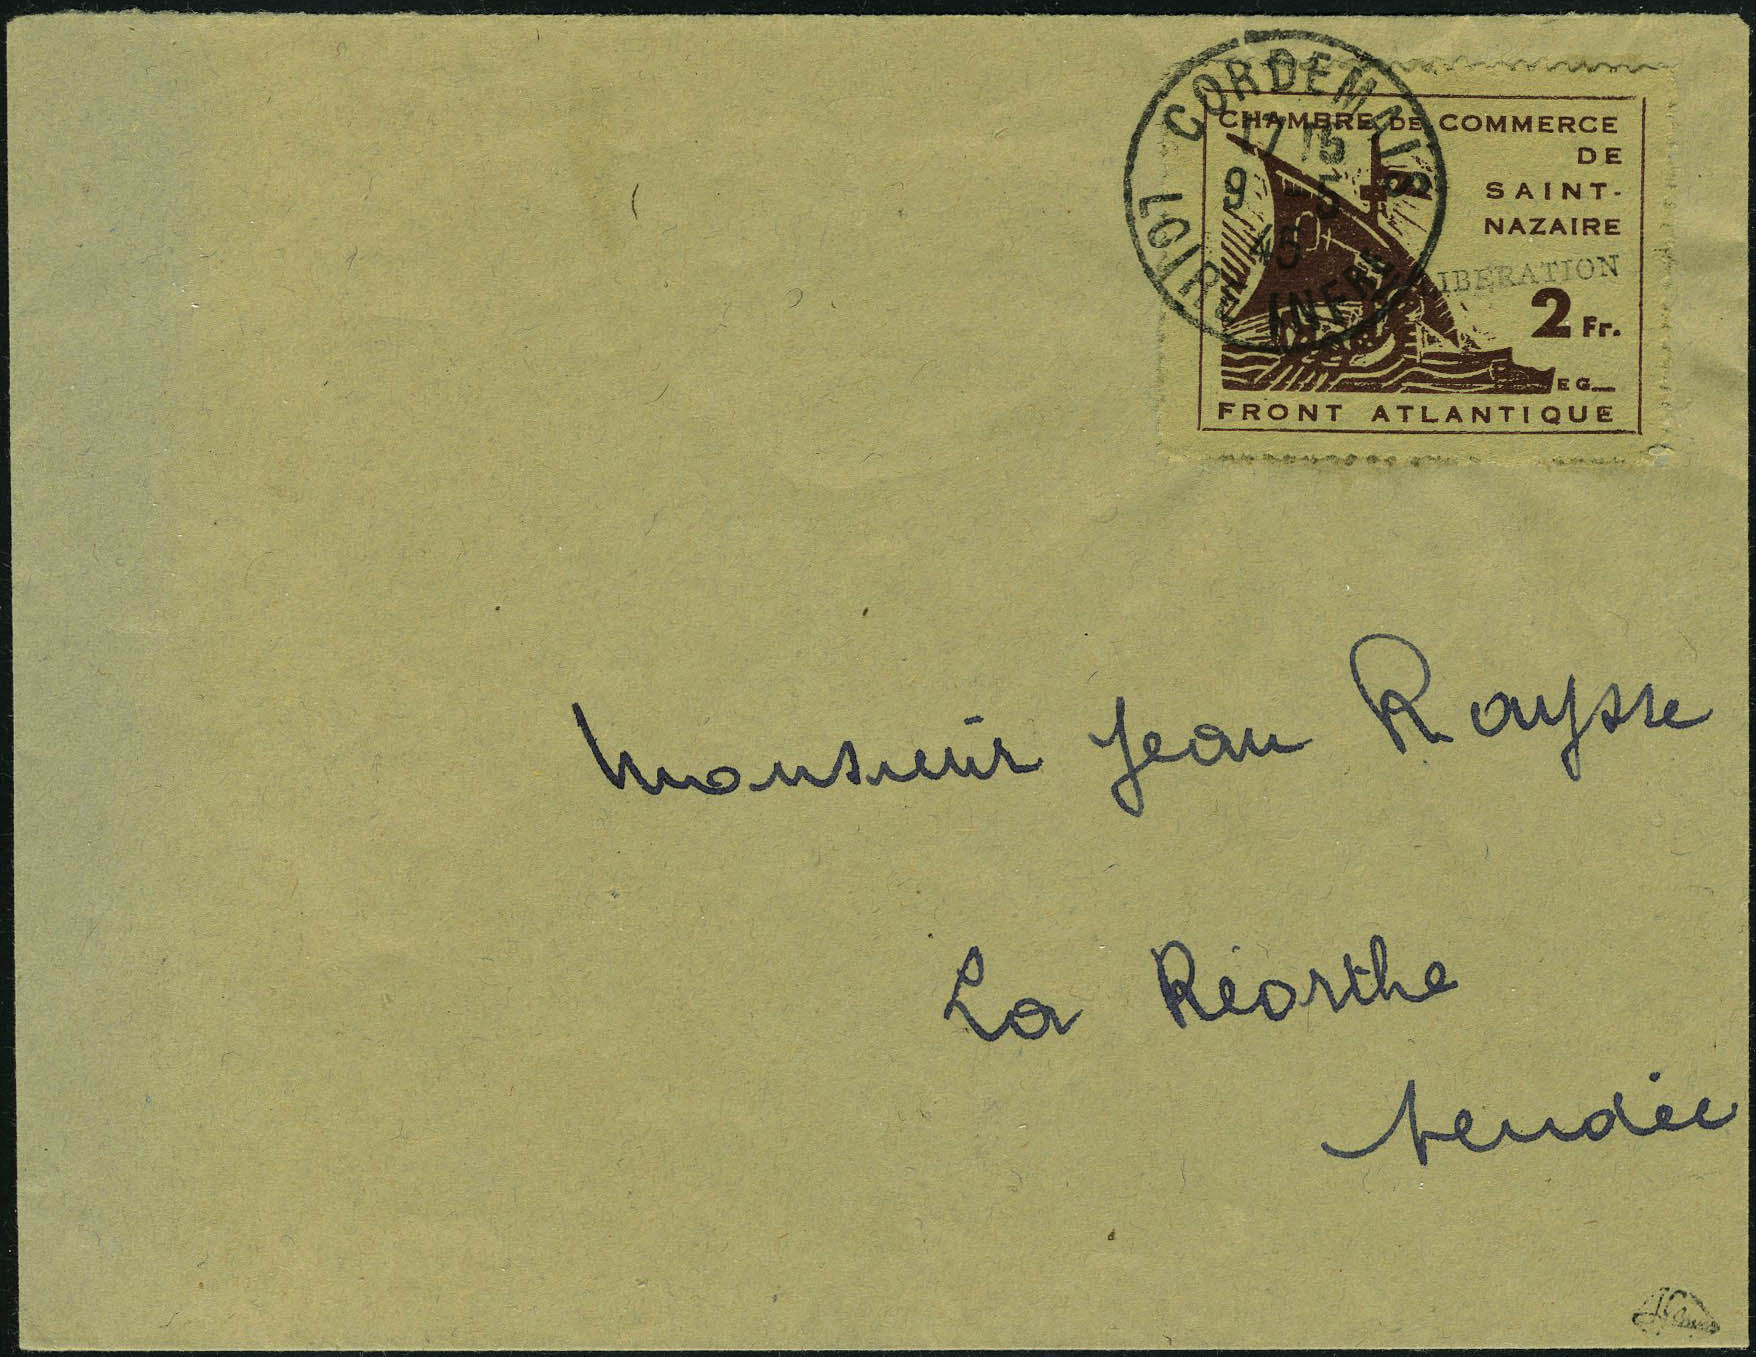 CORDEMAIS
17 15
9 - 5
45
LOIRE INFRE
CHAMBRE DE COMMERCE
DE
SAINT-
NAZAIRE
LIBERATION
2 Fr.
EG
FRONT ATLANTIQUE
Monsieur Jean Raysse
La Réorthe
Vendée